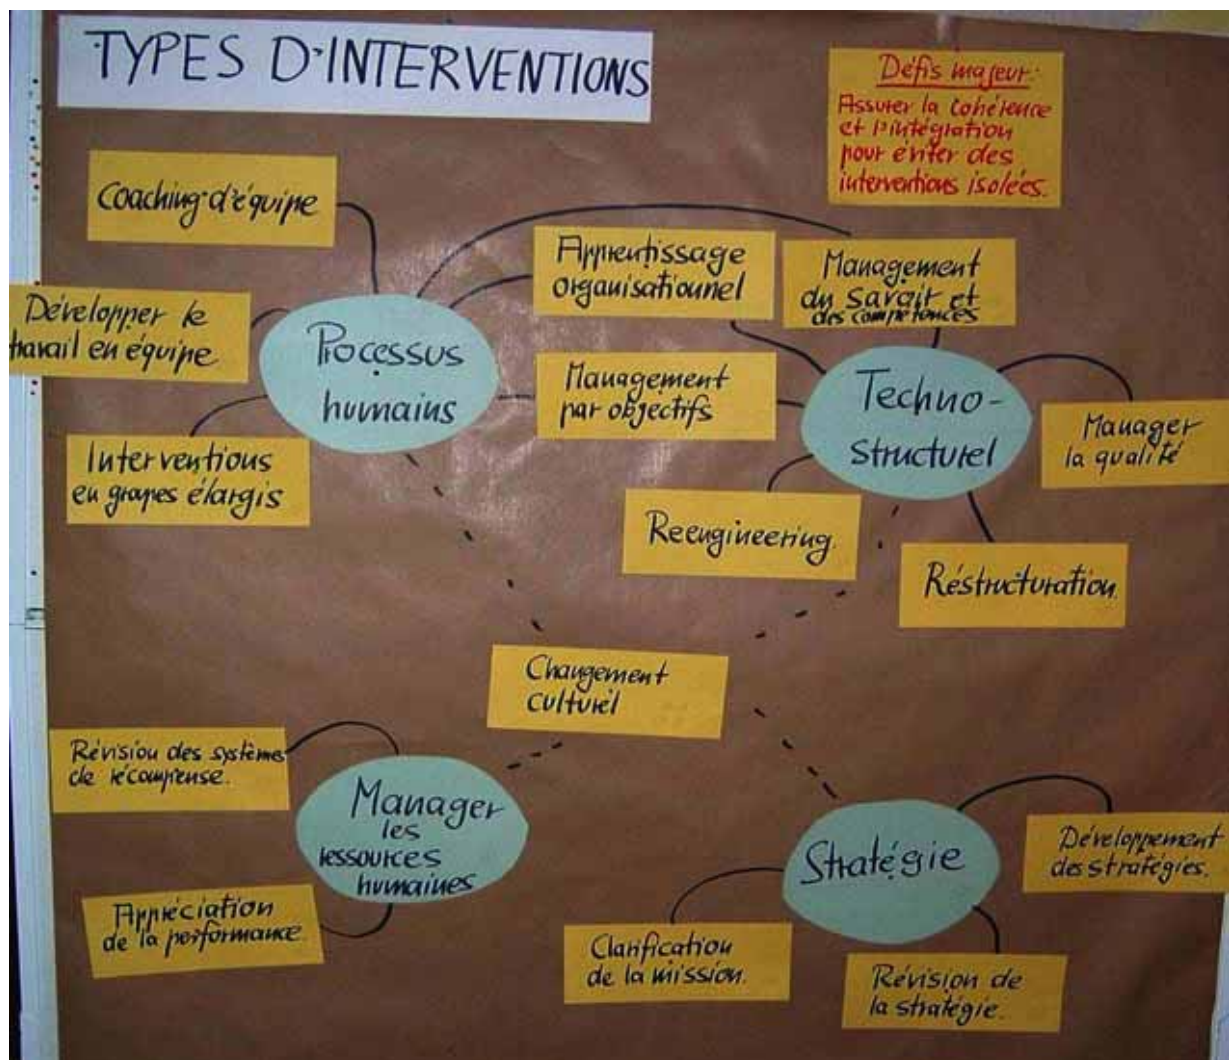 TYPES D'INTERVENTIONS
Défis majeur:
Assurer la cohérence
et l'intégration
pour éviter des
interventions isolées.
Coaching d'équipe
Développer le
travail en équipe
Interventions
en groupes élargis
Processus
humains
Apprentissage
organisationnel
Management
du savoir et
des compétences
Management
par objectifs
Techno-
structurel
Manager
la qualité
Reengineering.
Réstructuration.
Changement
culturel
Révision des systèmes
de récompense.
Manager
les
ressources
humaines
Appréciation
de la performance.
Stratégie
Développement
des stratégies.
Clarification
de la mission.
Révision de
la stratégie.